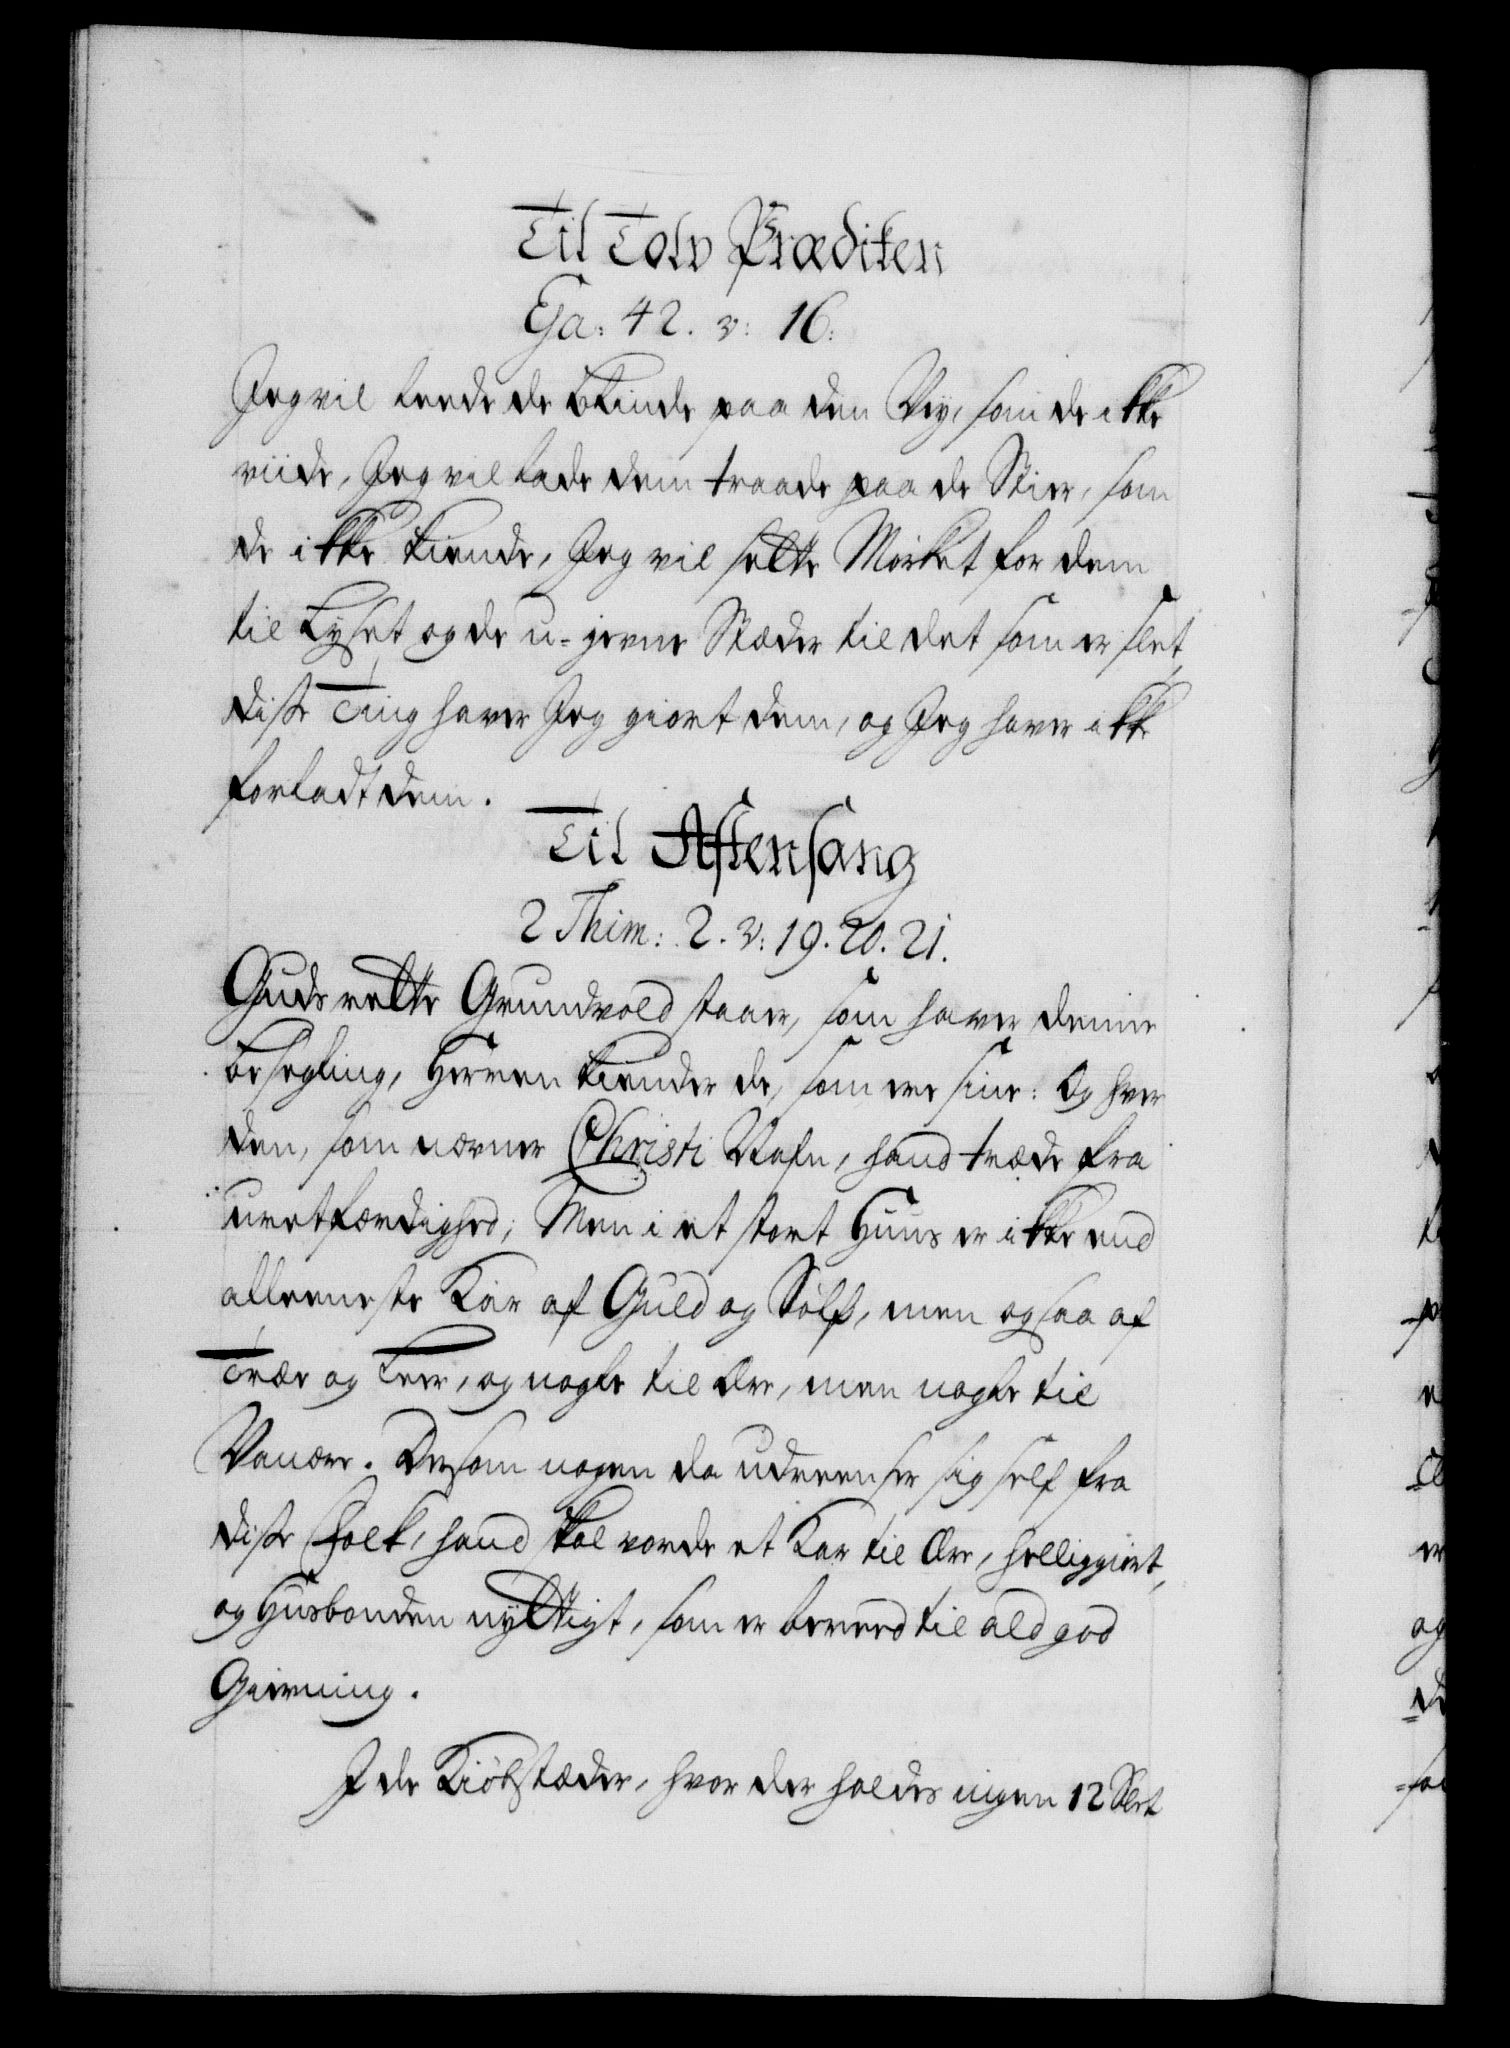 Til Tolv Prædiken
Esa: 42. v: 16:
Jeg vil leede de blinde paa den Vey, som de ikke
viide, Jeg vil lade dem traade paa de Stier, som
de ikke kiende, Jeg vil sette Mørket for dem
til Lyset og de u-jevne Stæder til det som er slet,
disse Ting haver Jeg giort dem, og Jeg haver ikke
forladt dem.
Til Aftensang
2 Thim: 2. v: 19. 20. 21.
Guds rette Grundvold staaer, som haver denne
besegling, Herren kiender de, som ere sine: Og hver
den, som nævner Christi Nafn, hand træde fra
uretfærdighed; Men i et stort Huus er ikke eno
alleeneste Kar af Guld og Sølf, men ogsaa af
Træe og Leer, og nogle til ære, men nogle til
Vanære. Dersom nogen da udreenser sig self fra
disse Folk, hand skal vorde et Kar til ære, helliggiort,
og Husbonden nyttigt, som er bereed til ald god
Gierning.
I de Kiøbstæder, hvor der holdes ingen 12 Slet